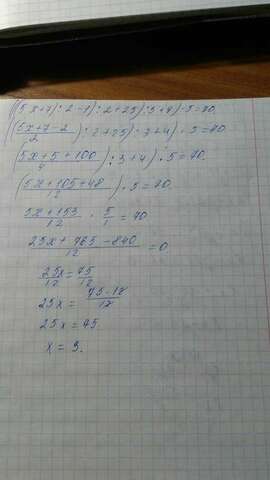 (((5x+7):2-1):2+25):3+4)·5=70.
((5x+7-2)/2):2+25):3+4)·5=70
((5x+5+100)/4):3+4)·5=70.
((5x+105+48)/12)·5=70.
(5x+153)/12 · 5/1 = 70
(25x+765-840)/12 = 0
25x/12 = 75/12
25x = 75·12/12
25x = 75
x = 3.